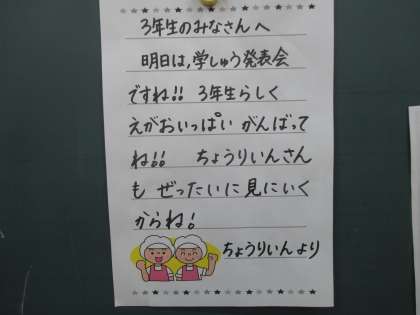 3年生のみなさんへ
明日は,学しゅう発表会
ですね!! 3年生らしく
えがおいっぱい がんばって
ね!! ちょうりいんさん
も ぜったいに見にいく
からね!
ちょうりいんより